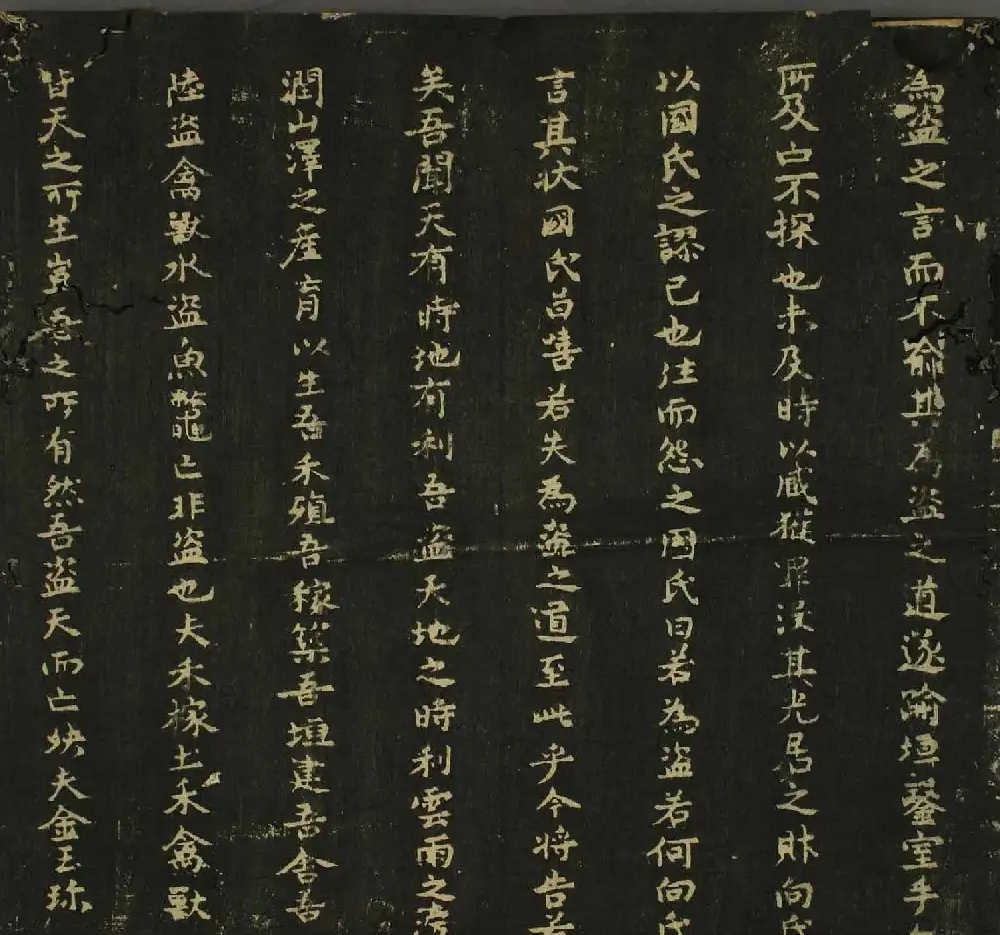 為盜之言而不喻其為盜之道遂踰垣鑿室手
所及亡不探也未及時以贓獲罪沒其先居之財向氏
以國氏之謬己也往而怨之國氏曰若為盜若何向氏
言其狀國氏曰嘻若失為盜之道至此乎今將告若
矣吾聞天有時地有利吾盜天地之時利雲雨之滂
潤山澤之產育以生吾禾殖吾稼築吾垣建吾舍吾
陸盜禽獸水盜魚鼈亡非盜也夫禾稼土木禽獸
皆天之所生豈吾之所有然吾盜天而亡殃夫金玉珎